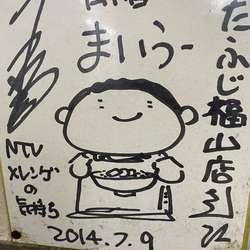 まいうー
たふじ福山店さん江
NTV
メレンゲ
の
気持ち
2014.7.9